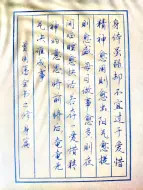 身体虽弱却不宜过于爱惜
精神愈用则愈出阳气愈提
则愈盛每日做事愈多则夜
间临睡愈快活若存一爱惜精
神的意思将前将却奄奄无
气决难成事
曾国藩